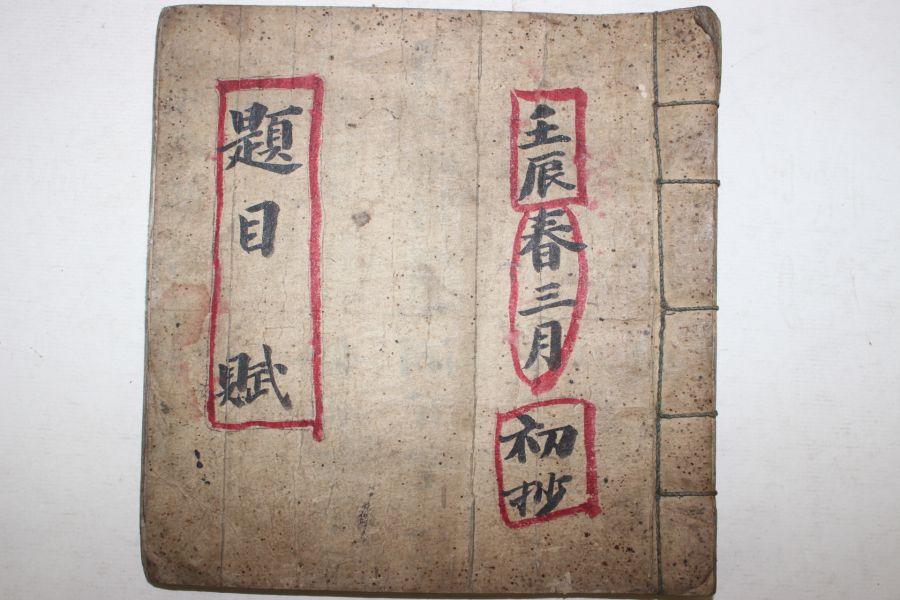 壬辰春三月初抄
題目賦